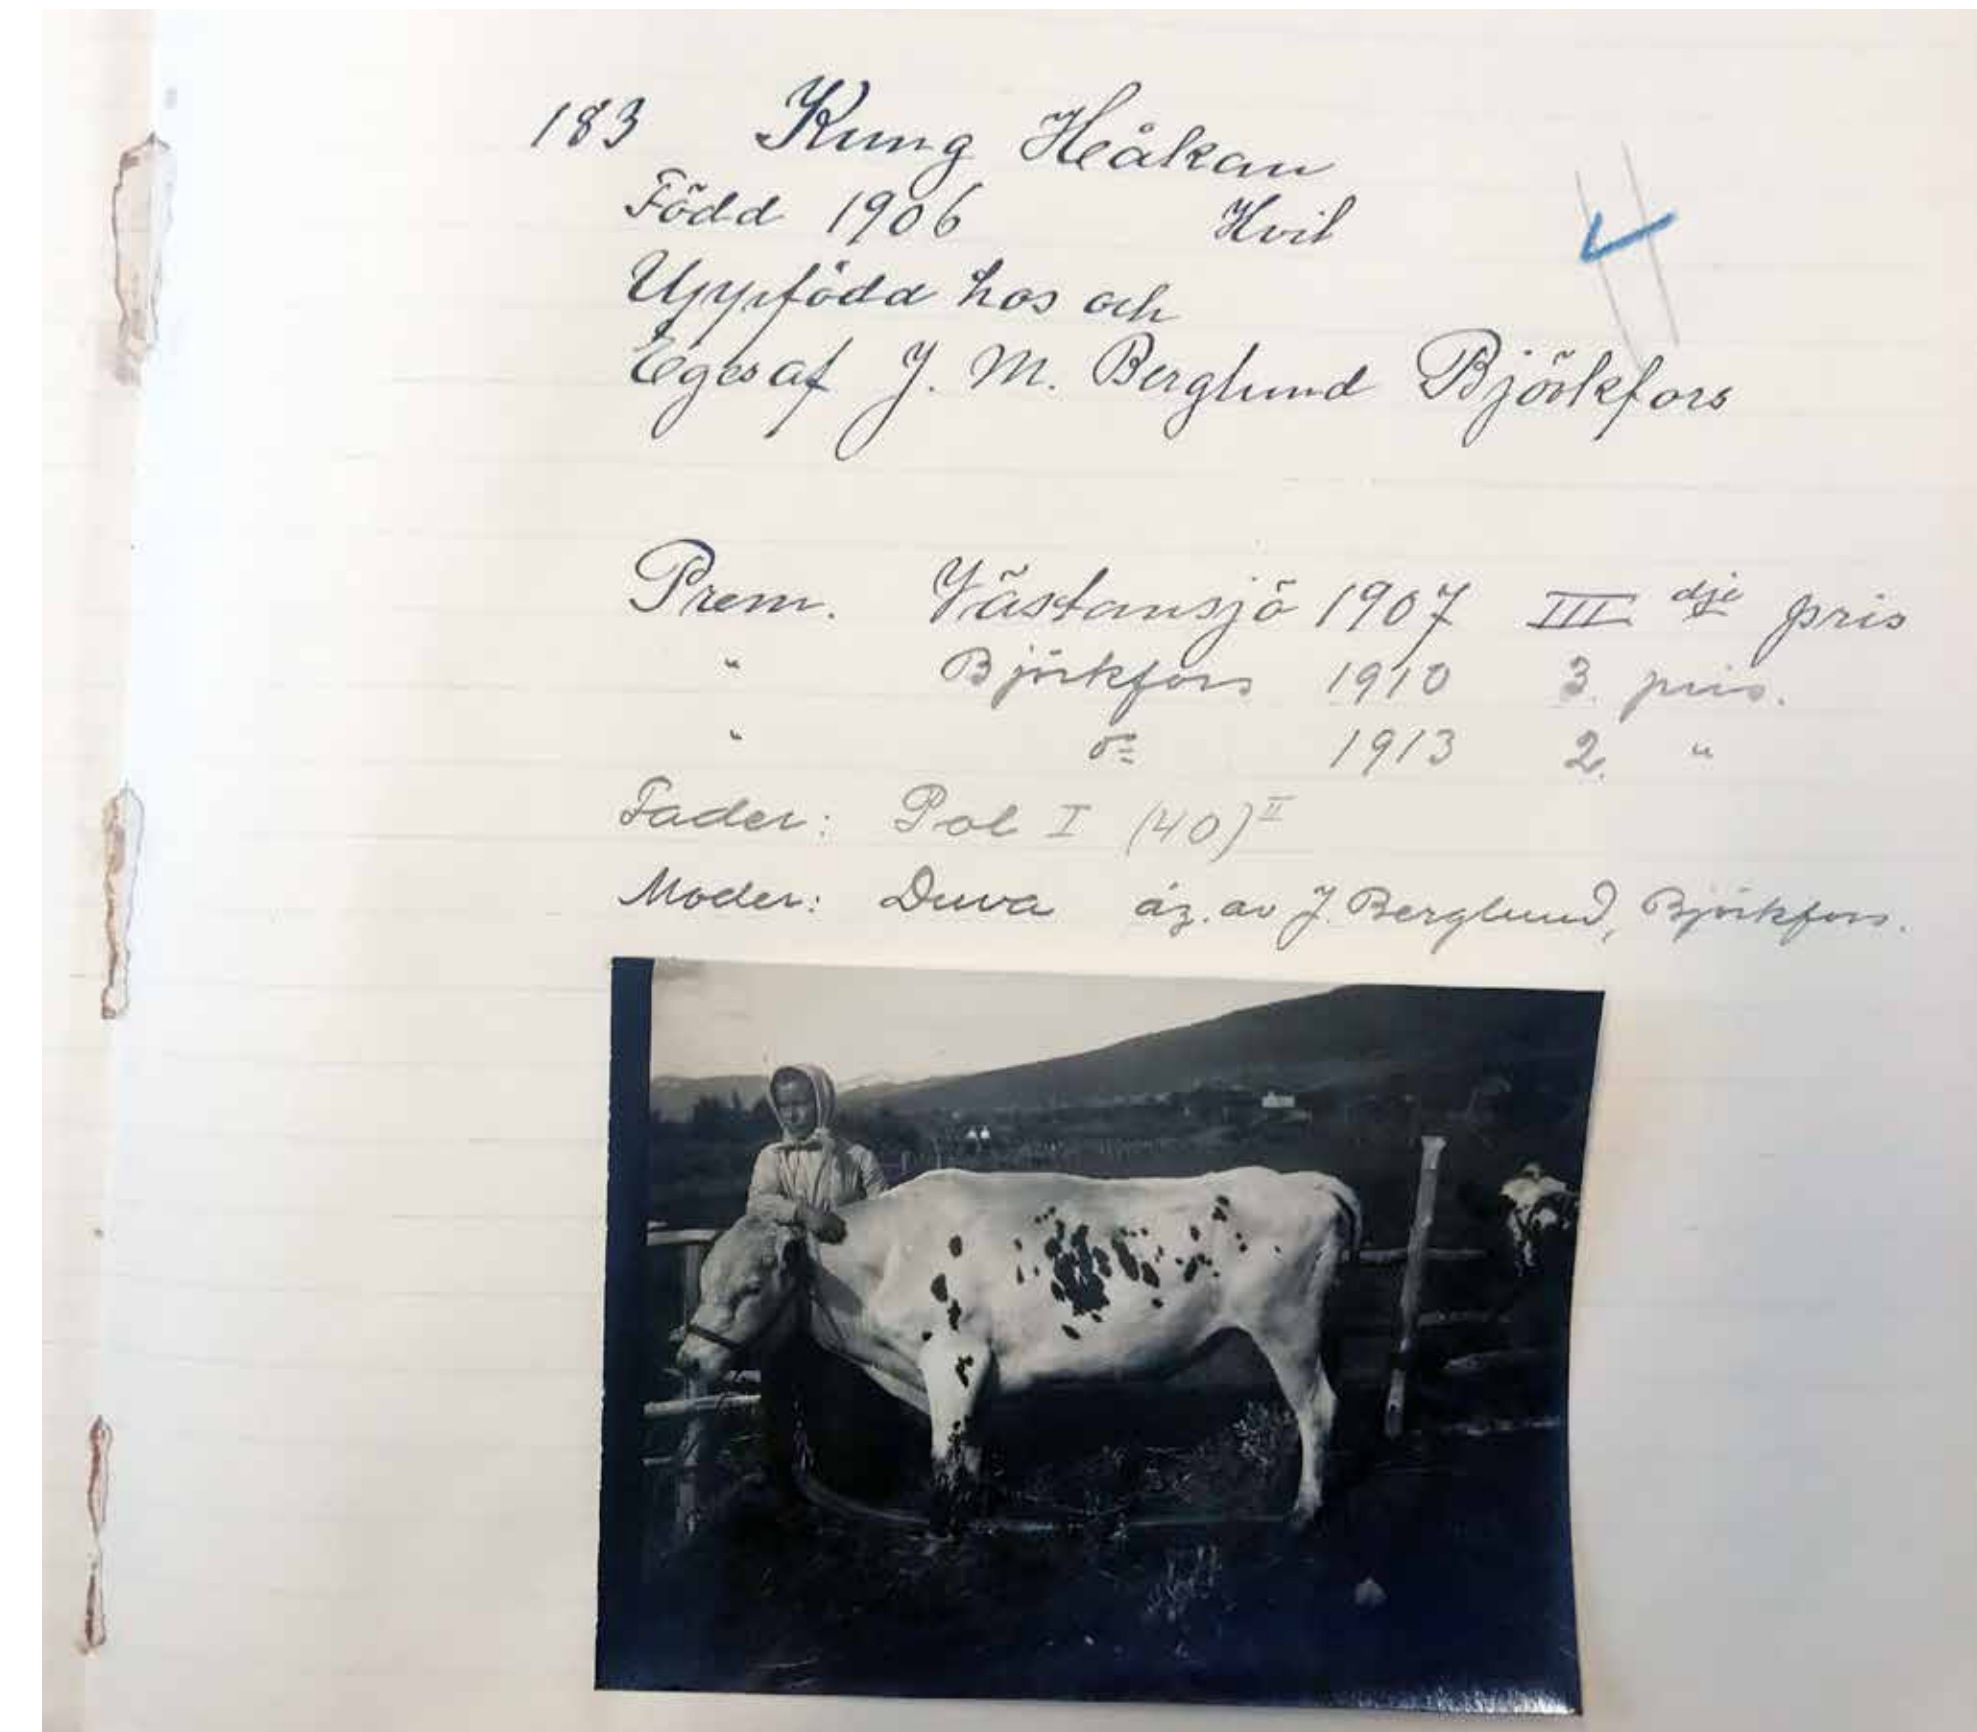 183 Kung Håkan
Född 1906 Hvit
Uppfödd hos och
Eges af J. M. Berglund Björkfors
Prem. Västansjö 1907 III dje pris
" Björkfors 1910 3. pris.
" do 1913 2. "
Fader: Pol I (40) II
Moder: Duva äg. av J. Berglund, Björkfors.